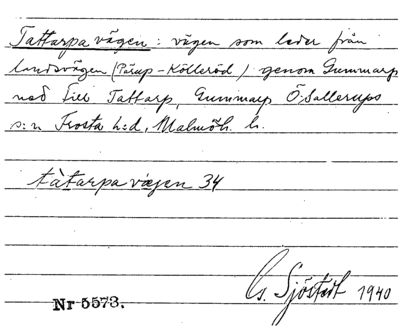 Tattarpa vägen: vägen som leder från
landsvägen (Pärup-Kölleröd) genom Gummarp
ned till Tattarp, Gummarp Ö: Sallerups
s:n Frosta h:d, Malmöh. l.
tàtarpa vægen 34
G. Sjöstedt 1940
Nr 5573.